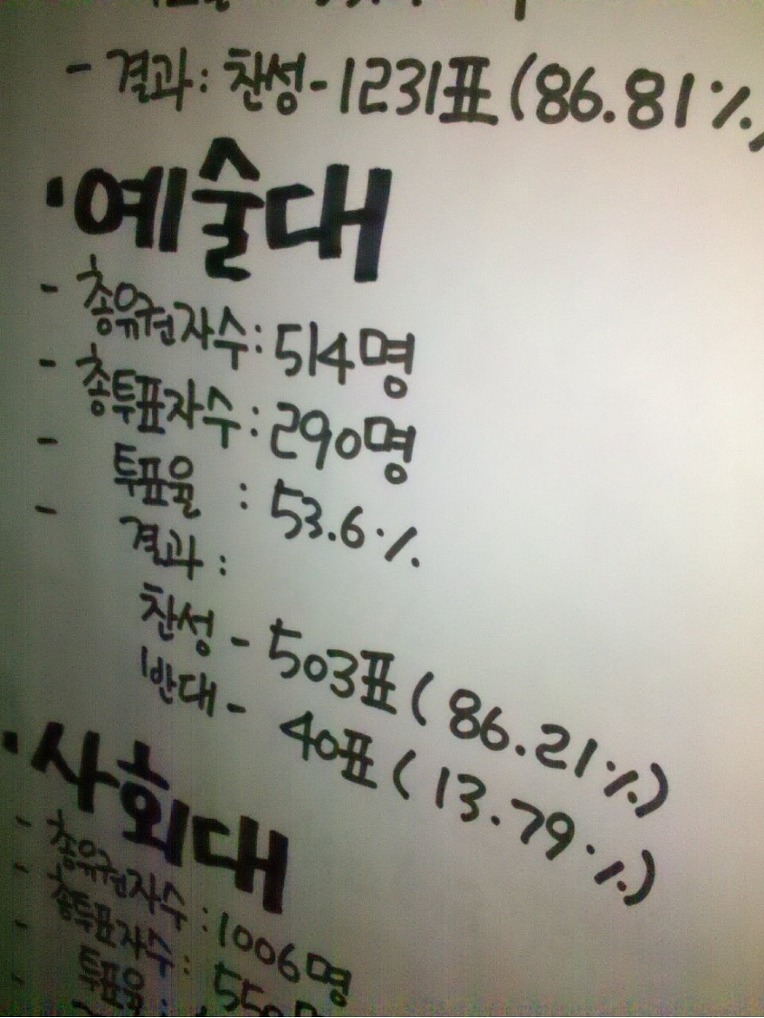 - 결과 : 찬성 - 1231표 (86.81%)
· 예술대
- 총유권자수 : 514명
- 총투표자수 : 290명
- 투표율 : 53.6%
- 결과 :
찬성 - 503표 (86.21%)
반대 - 40표 (13.79%)
· 사회대
- 총유권자수 : 1006명
- 총투표자수 :
- 투표율 :